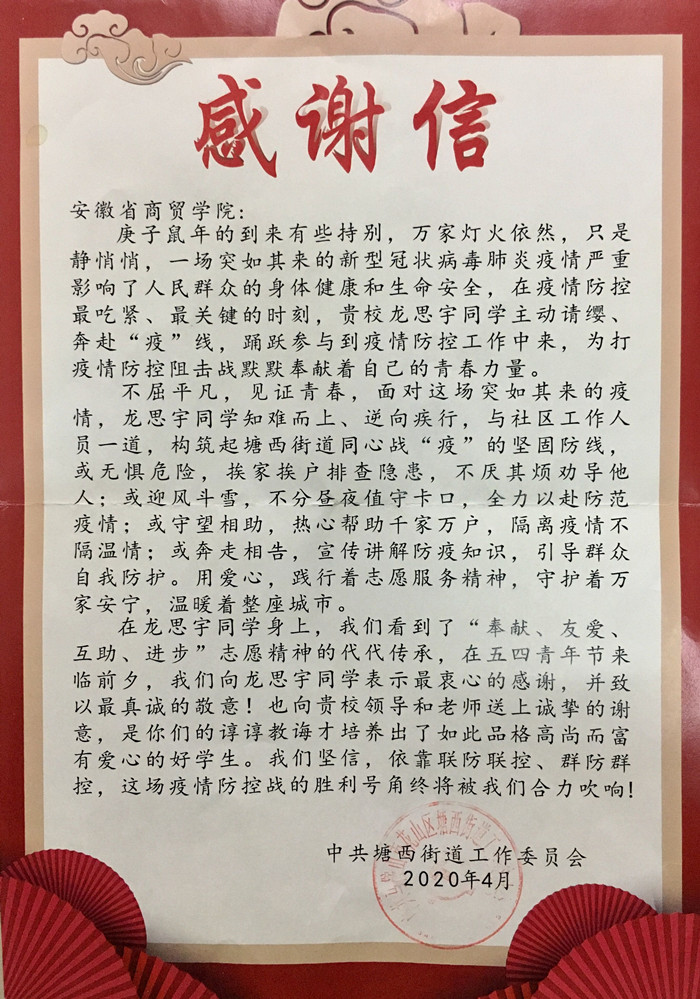 感谢信
安徽省商贸学院：
庚子鼠年的到来有些持别，万家灯火依然，只是
静悄悄，一场突如其来的新型冠状病毒肺炎疫情严重
影响了人民群众的身体健康和生命安全，在疫情防控
最吃紧、最关键的时刻，贵校龙思宇同学主动请缨、
奔赴“疫”线，踊跃参与到疫情防控工作中来，为打
疫情防控阻击战默默奉献着自己的青春力量。
不屈平凡，见证青春，面对这场突如其来的疫
情，龙思宇同学知难而上、逆向疾行，与社区工作人
员一道，构筑起塘西街道同心战“疫”的坚固防线，
或无惧危险，挨家挨户排查隐患，不厌其烦劝导他
人；或迎风斗雪，不分昼夜值守卡口，全力以赴防范
疫情；或守望相助，热心帮助千家万户，隔离疫情不
隔温情；或奔走相告，宣传讲解防疫知识，引导群众
自我防护。用爱心，践行着志愿服务精神，守护着万
家安宁，温暖着整座城市。
在龙思宇同学身上，我们看到了“奉献、友爱、
互助、进步”志愿精神的代代传承，在五四青年节来
临前夕，我们向龙思宇同学表示最衷心的感谢，并致
以最真诚的敬意！也向贵校领导和老师送上诚挚的谢
意，是你们的谆谆教诲才培养出了如此品格高尚而富
有爱心的好学生。我们坚信，依靠联防联控、群防群
控，这场疫情防控战的胜利号角终将被我们合力吹响！
中共塘西街道工作委员会
2020年4月
龙山区塘西街道工